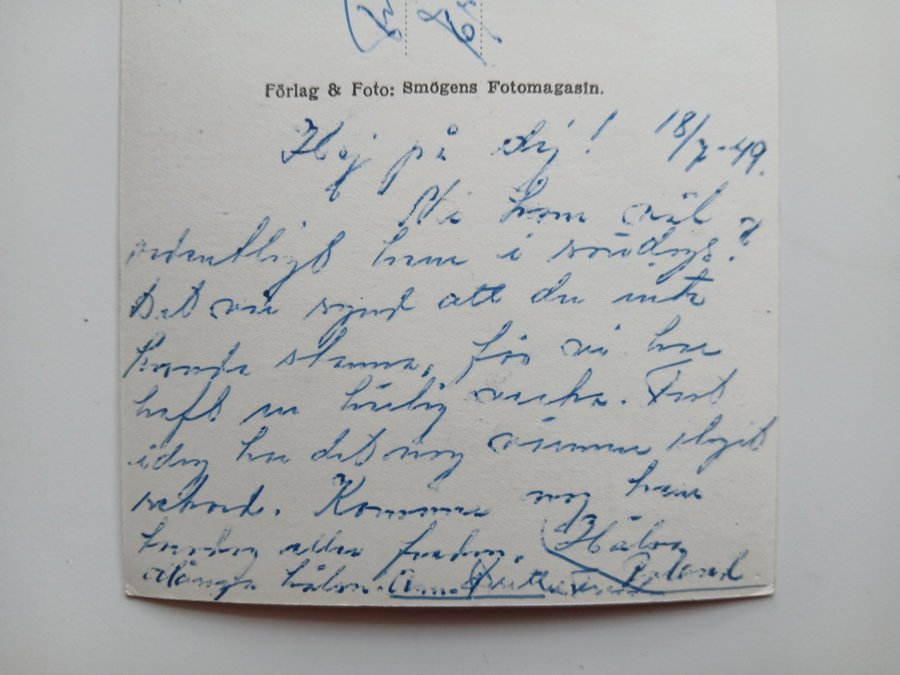 Förlag & Foto: Smögens Fotomagasin.
Hej på dig! 18/7-49.
Ni kom väl
ordentligt hem i söndags?
Det var synd att du inte
kunde stanna, för vi har
haft en härlig vecka. Fast
idag har det nog värmen slagit
rekord. Kommer nog hem
torsdag eller fredag. Hälsn
Många hälsn. Roland